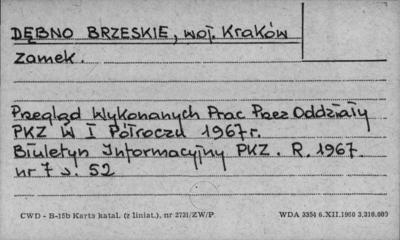 DĘBNO BRZESKIE, woj. Kraków
Zamek.
Przegląd Wykonanych Prac Przez Oddziały
PKZ W I Półroczu 1967 r.
Biuletyn Informacyjny PKZ. R. 1967.
nr 7 s. 52
CWD - B-15b Karta katal. (z liniat.), nr 2731/ZW/P.
WDA 3354 6.XII.1960 3,210.000